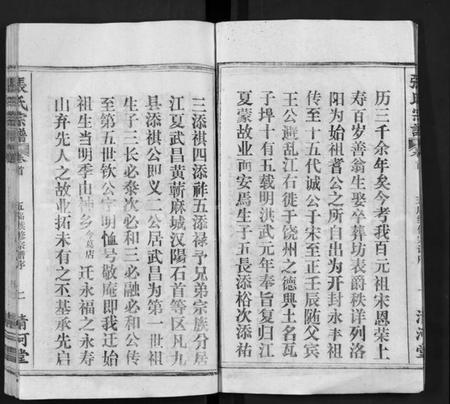 历三千余年矣今考我百元祖宋恩荣上
寿百岁善翁生娶卒葬坊表爵秩详列洛
阳为始祖耆公之所自出为开封永丰祖
传至十五代诚公于宋至正壬辰随父宾
王公避乱江右徙于饶州之德興土名瓦
子埠十有五载明洪武元年奉旨复归江
夏蒙故业而安焉生于五長添裕次添祐
三添祺四添祚五添禄予兄弟宗族分居
江夏武昌黄蕲麻城汉陽石首等区凡九
县添祺公即义二公居武昌为第一世祖
生子三长必叅次必和三必融必和公传
至第五世钦公字明恤号敬庵即我迁始
祖生当明季由神乡金墓店迁永福之永寿
山弃先人之故业拓未有之丕基承先启
張氏宗譜
卷首
五福族修宗譜序
清河堂
清河堂